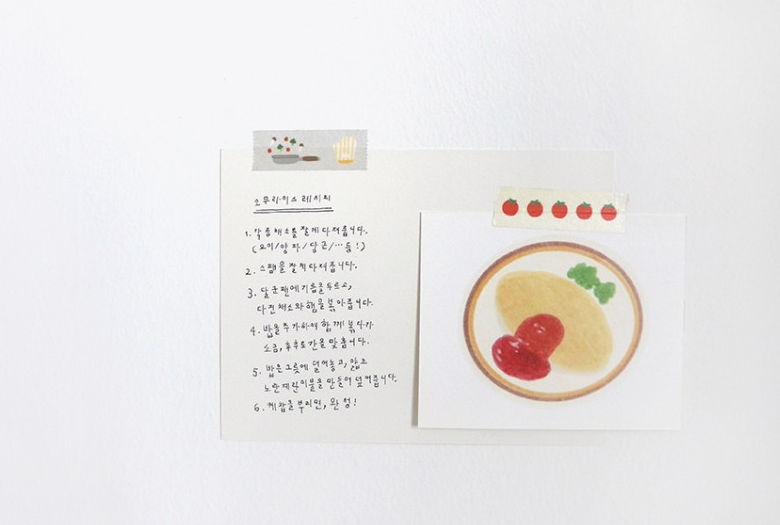 오므라이스 레시피
1. 각종 채소를 잘게 다져줍니다.
(오이/양파/당근/… 등!)
2. 스팸을 잘게 다져줍니다.
3. 달군 팬에 기름을 두르고,
다진 채소와 햄을 볶아줍니다.
4. 밥을 추가하여 함께 볶다가
소금, 후추로 간을 맞춥니다.
5. 밥은 그릇에 덜어놓고, 얇고
노란 계란이불을 만들어 덮어줍니다.
6. 케찹을 뿌리면, 완성!